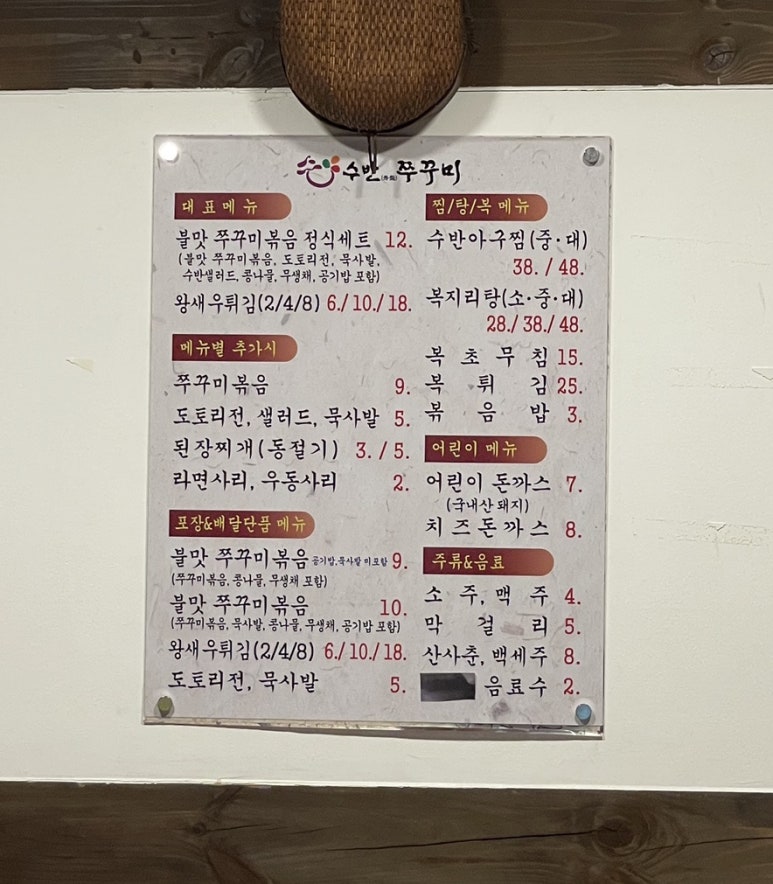 수반 쭈꾸미
대표메뉴
불맛 쭈꾸미볶음 정식세트 12.
(불맛 쭈꾸미볶음, 도토리전, 묵사발,
수반샐러드, 콩나물, 무생채, 공기밥 포함)
왕새우튀김(2/4/8) 6./10./18.
메뉴별 추가시
쭈꾸미볶음 9.
도토리전, 샐러드, 묵사발 5.
된장찌개(동절기) 3. / 5.
라면사리, 우동사리 2.
포장&배달단품 메뉴
불맛 쭈꾸미볶음 공기밥,묵사발 미포함 9.
(쭈꾸미볶음, 콩나물, 무생채 포함)
불맛 쭈꾸미볶음 10.
(쭈꾸미볶음, 묵사발, 콩나물, 무생채, 공기밥 포함)
왕새우튀김(2/4/8) 6./10./18.
도토리전, 묵사발 5.
찜/탕/복 메뉴
수반아구찜(중·대)
38. / 48.
복지리탕(소·중·대)
28./38./48.
복초무침 15.
복튀김 25.
볶음밥 3.
어린이 메뉴
어린이 돈까스 7.
(국내산 돼지)
치즈돈까스 8.
주류&음료
소주, 맥주 4.
막걸리 5.
산사춘, 백세주 8.
음료수 2.